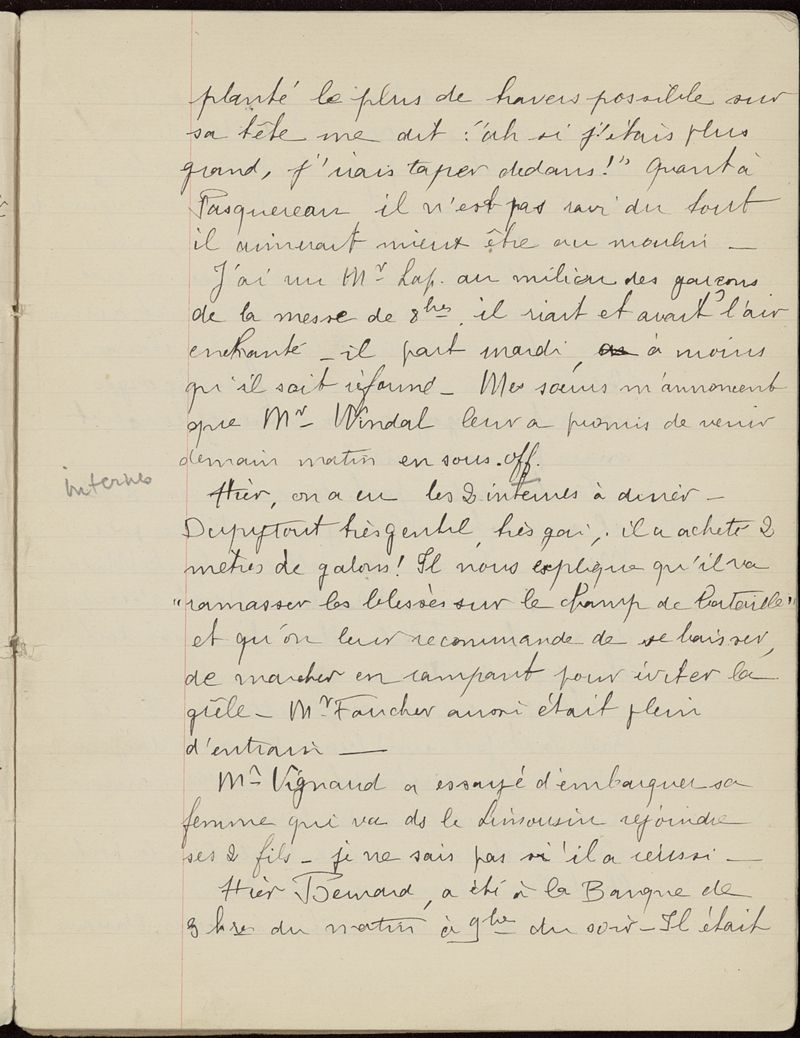 planté le plus de havers possible sur
sa tête me dit : "ah si j'étais plus
grand, j'irais taper dedans!" Quant à
Pasquereau, il n'est pas ravi du tout
il aimerait mieux être au moulin _
J'ai vu Mr Laf. au milieu des garçons
de la messe de 8hes, il riait et avait l'air
enchanté _ il part mardi, à moins
qu'il soit réformé _ Mes sœurs m'annoncent
que Mr Windal leur a promis de venir
demain matin en sous.off.
internes
Hier, on a eu les 2 internes à dîner _
très gentil, très gai, il a acheté 2
mètres de galons! Il nous explique qu'il va
"ramasser les blessés sur le champ de bataille"
et qu'on leur recommande de se baisser,
de marcher en rampant pour éviter la
grêle _ Mr Faucher aussi était plein
d'entrain _
Mr Vignaud a essayé d'embarquer sa
femme qui va ds le Limousin rejoindre
ses 2 fils _ je ne sais pas s'il a réussi _
Hier Bernard, a été à la Banque de
hres du matin à 9he du soir _ Il était